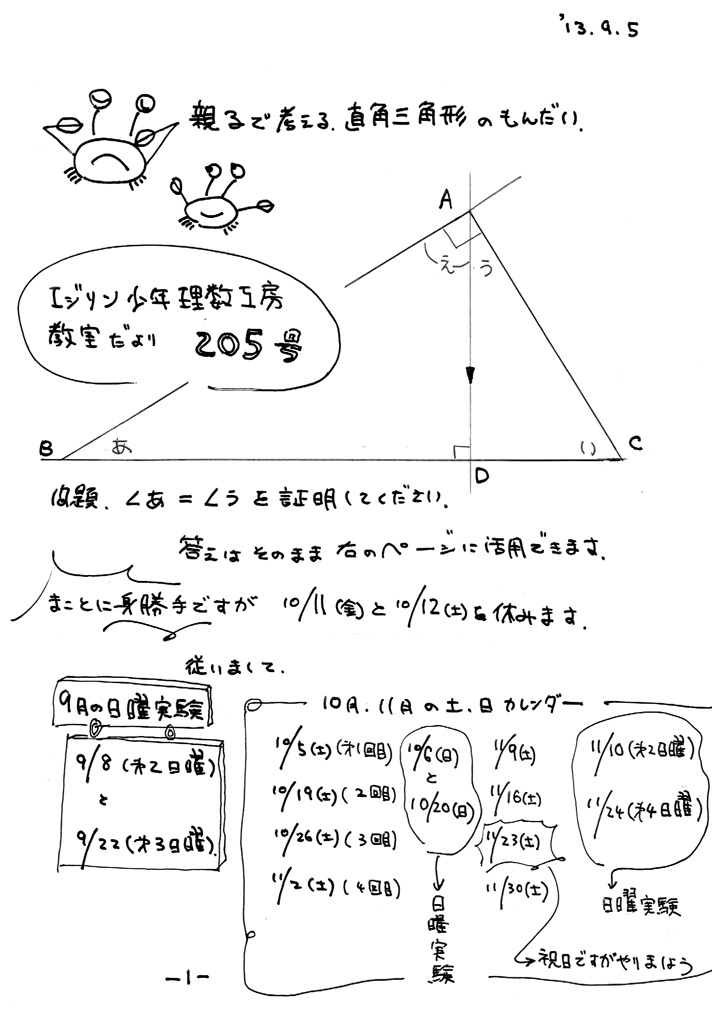 '13.9.5
親子で考える、直角三角形のもんだい。
エジソン少年理数工房
教室だより 205号
A
え う
B あ い C
D
問題. ∠あ = ∠う を証明してください。
答えは そのまま 右のページに活用できます。
まことに身勝手ですが 10/11(金)と10/12(土)を休みます。
従いまして、
9月の日曜実験
9/8(第2日曜)
と
9/22(第3日曜)
10月、11月の土、日カレンダー
10/5(土)(第1回目)
10/19(土)(2回目)
10/26(土)(3回目)
11/2(土)(4回目)
10/6(日)
と
10/20(日)
日曜実験
11/9(土)
11/16(土)
11/23(土)
11/30(土)
祝日ですがやりましょう
11/10(第2日曜)
11/24(第4日曜)
日曜実験
-1-